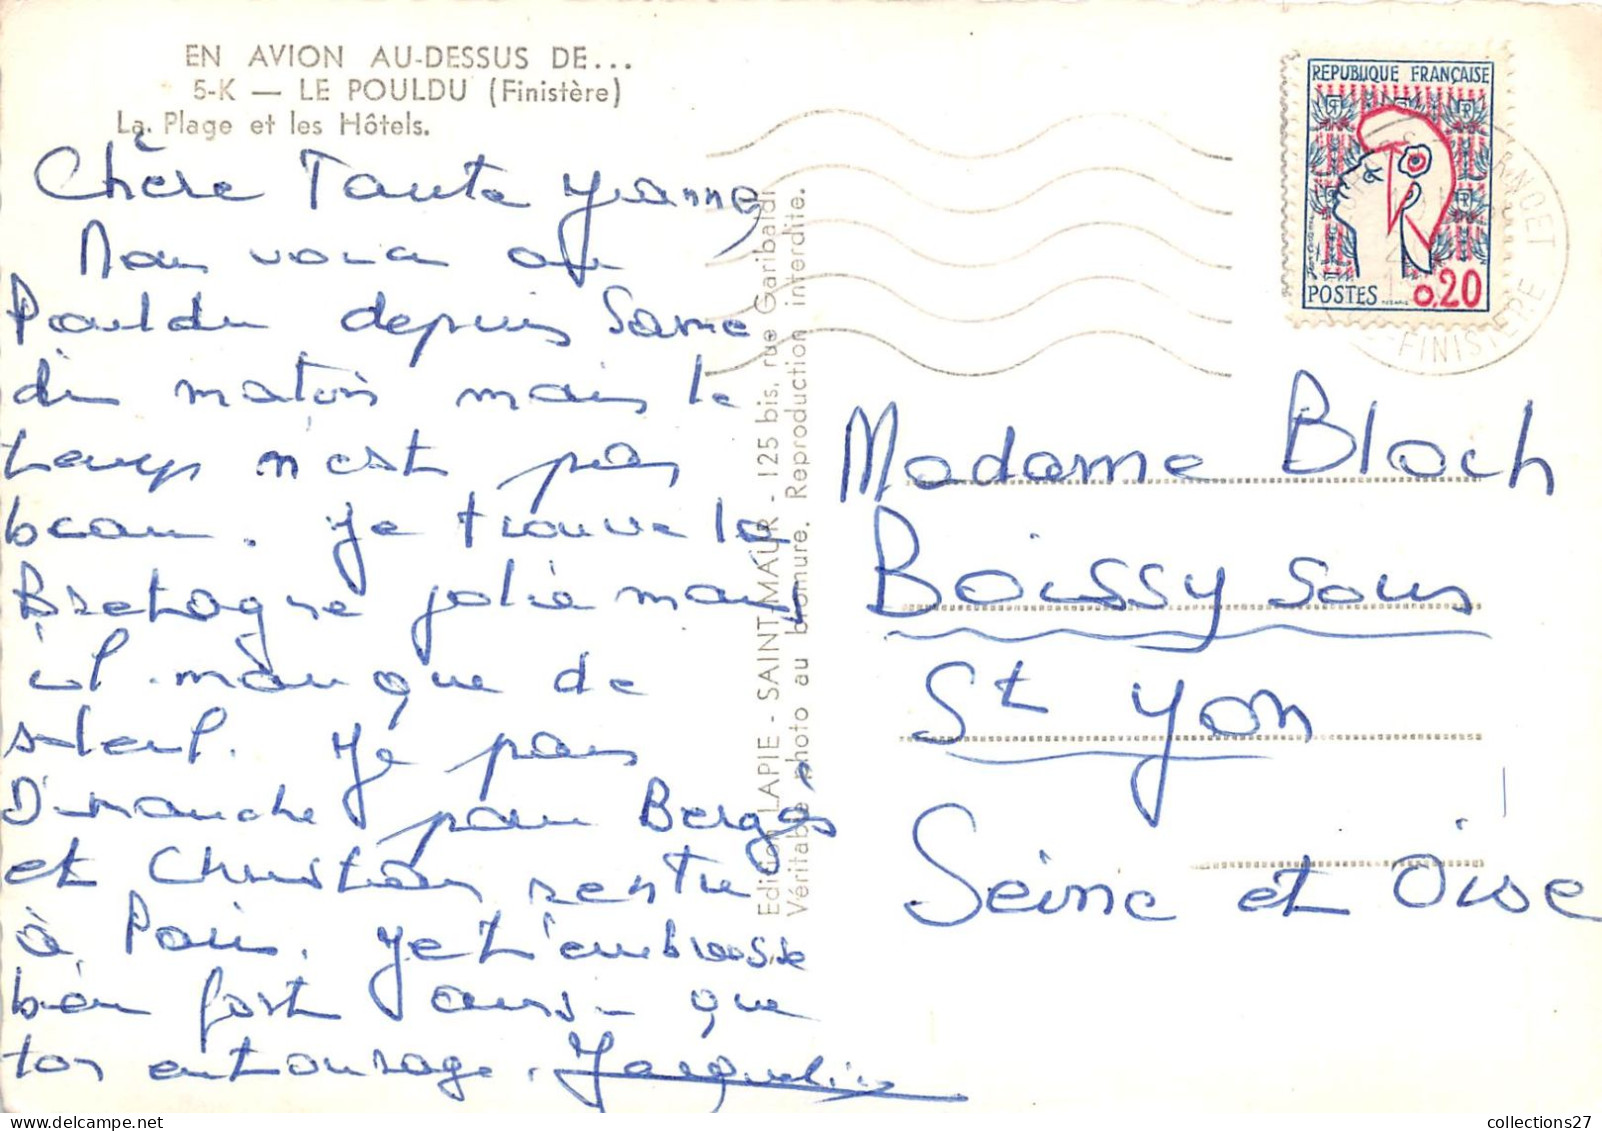 EN AVION AU-DESSUS DE...
5-K — LE POULDU (Finistère)
La Plage et les Hôtels.
Chère Tante Yvonne,
Nous voici au
Pouldu depuis Same
di matin mais le
temps n'est pas
beau. Je trouve la
Bretagne jolie mais
il manque de
soleil. Je pars
Dimanche pour
et Christian rentre
à Paris. Je t'embrasse
bien fort ainsi que
ton entourage. Jacqueline
Edition LAPIE - SAINT-MAUR - 125 bis, rue Garibaldi
Véritable photo au bromure. Reproduction interdite.
REPUBLIQUE FRANÇAISE
POSTES 0,20
FINISTERE
Madame Bloch
Boissy sous
St Yon
Seine et Oise
collections27